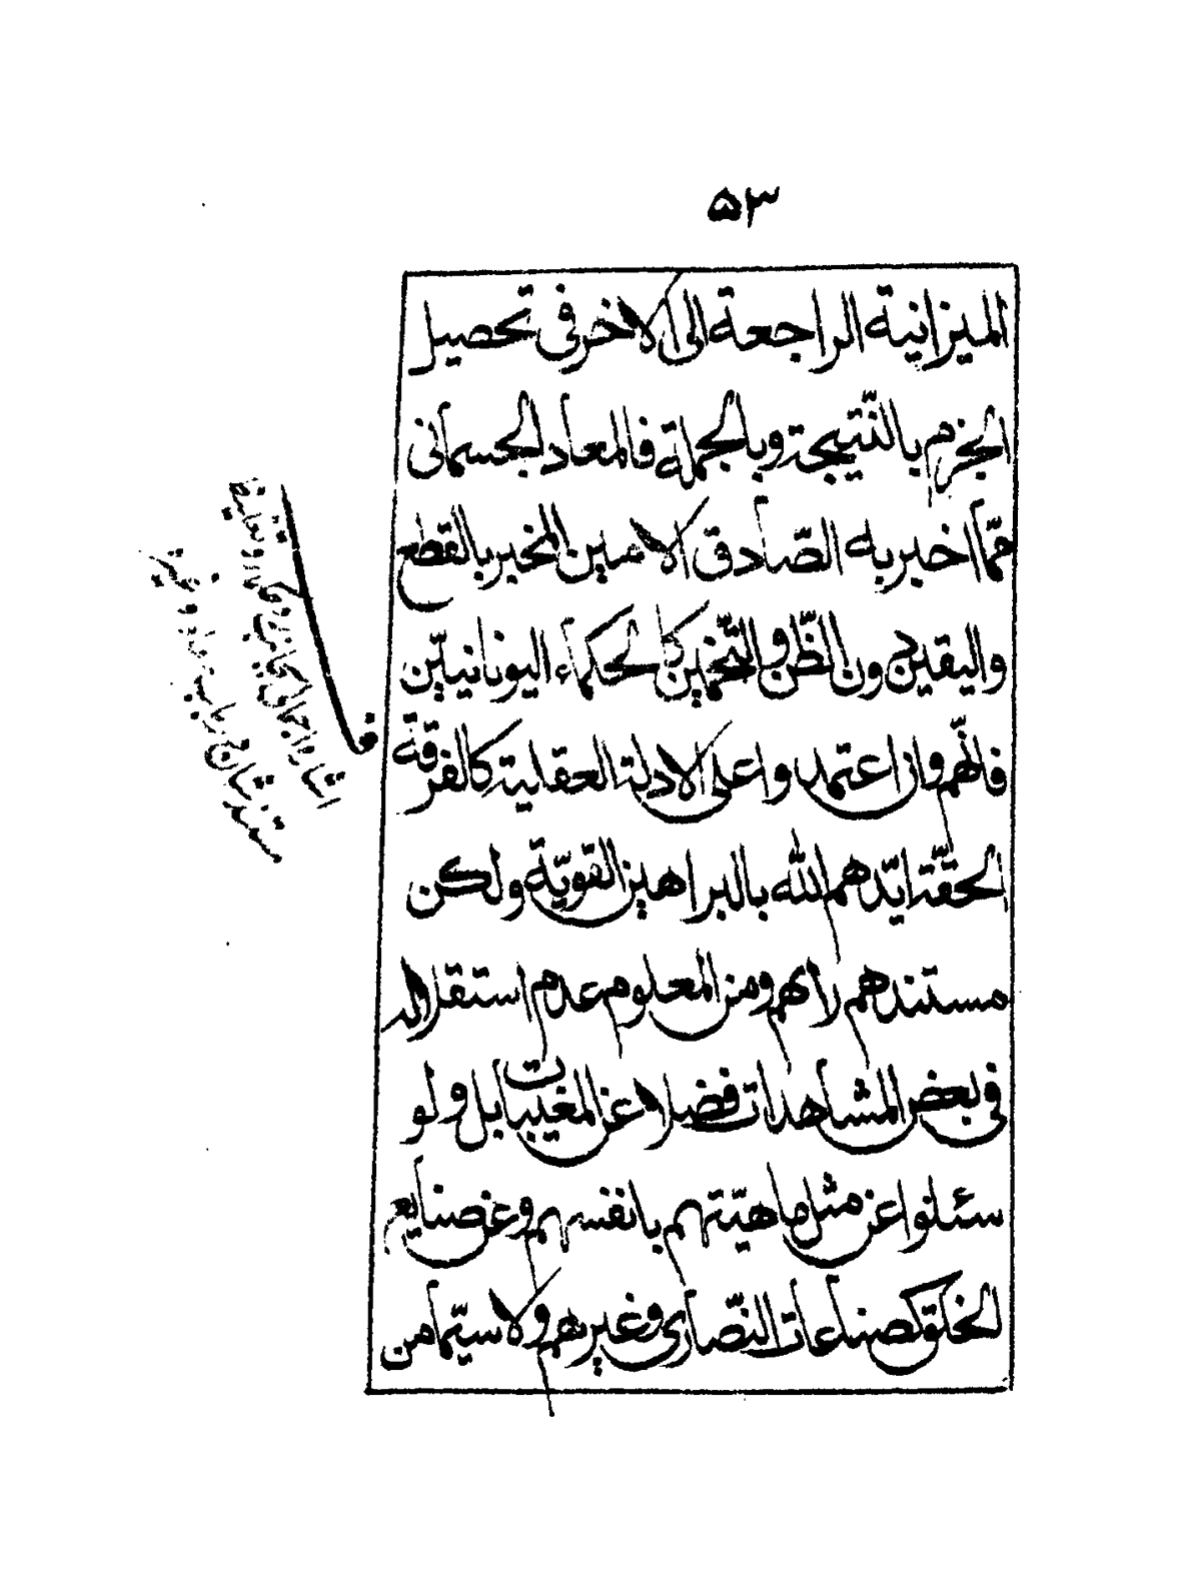 ۵۳
الميزانية الراجعة الى الاخر فى تحصيل
الجزم بالنّتيجة وبالجملة فالمعاد الجسمانى
ممّا اخبر به الصّادق الامين المخبر بالقطع
واليقين دون الظّن والتّخمين كالحكماء اليونانييّن
فانّهم وان اعتمدوا على الادلة العقلية كالفرقة
الحقّة ايّدهم الله بالبراهين القويّة ولكن
مستندهم رأيهم ومن المعلوم عدم استقلاله
فى بعض المشاهدات فضلا عن المغيبات بل ولو
سئلوا عن مثل ماهيّتهم بانفسهم وعن صنايع
الخلق كصناعات النّصارى وغيرهم ولا سيّما من